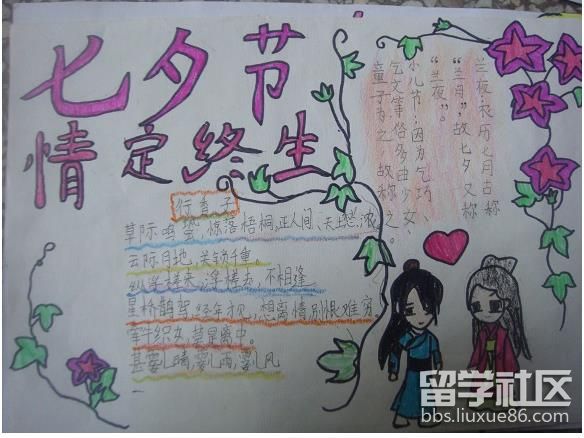 七夕节
情定终生
行香子
草际鸣蛩，惊落梧桐，正人间、天上愁浓
云际月地，关锁千重。
纵浮槎来，浮槎去，不相逢
星桥鹊驾，经年才见，想离情别恨难穷
牵牛织女，莫是离中。
甚霎儿晴，霎儿雨，霎儿风
兰夜：农历七月古称
“兰月”，故七夕又称
“兰夜”。
小儿节：因为乞巧、
乞文等俗多由少女、
童子为之，故称之。
留学社区
bbs.liuxue86.com